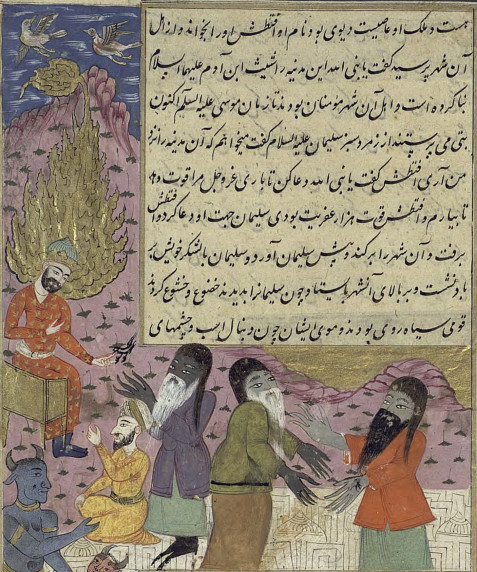 هست و ملک او عاصیست دیوی بود نام او افتطش اورا بخواند و از اهل
آن شهر پرسید گفت یا نبی الله این مدینه راشیث ابن آدم علیهما السلام
بنا کرده است و اهل آن شهر مؤمنان بودند تا زمان موسی علیه السلام اکنون
بتی می پرستند از زمرد سبز سلیمان علیه السلام گفت میخواهم که آن مدینه را نزد
من آری افتطش گفت یا نبی الله دعا کن تا باری عز و جل مرا قوت دهد
تا بیارم و افتطش قوت هزار عفریت بودی سلیمان جهت او دعا کرد افتطش
برفت و آن شهر را برکند و پیش سلیمان آورد و سلیمان با لشکر خویش بر
باد نشست و بر بالای آن شهر بایستاد و چون سلیمانرا بدیدند خضوع و خشوع کردند
قوی سیاه روی بودند و موی ایشان چون دنبال اسب و چشمهای